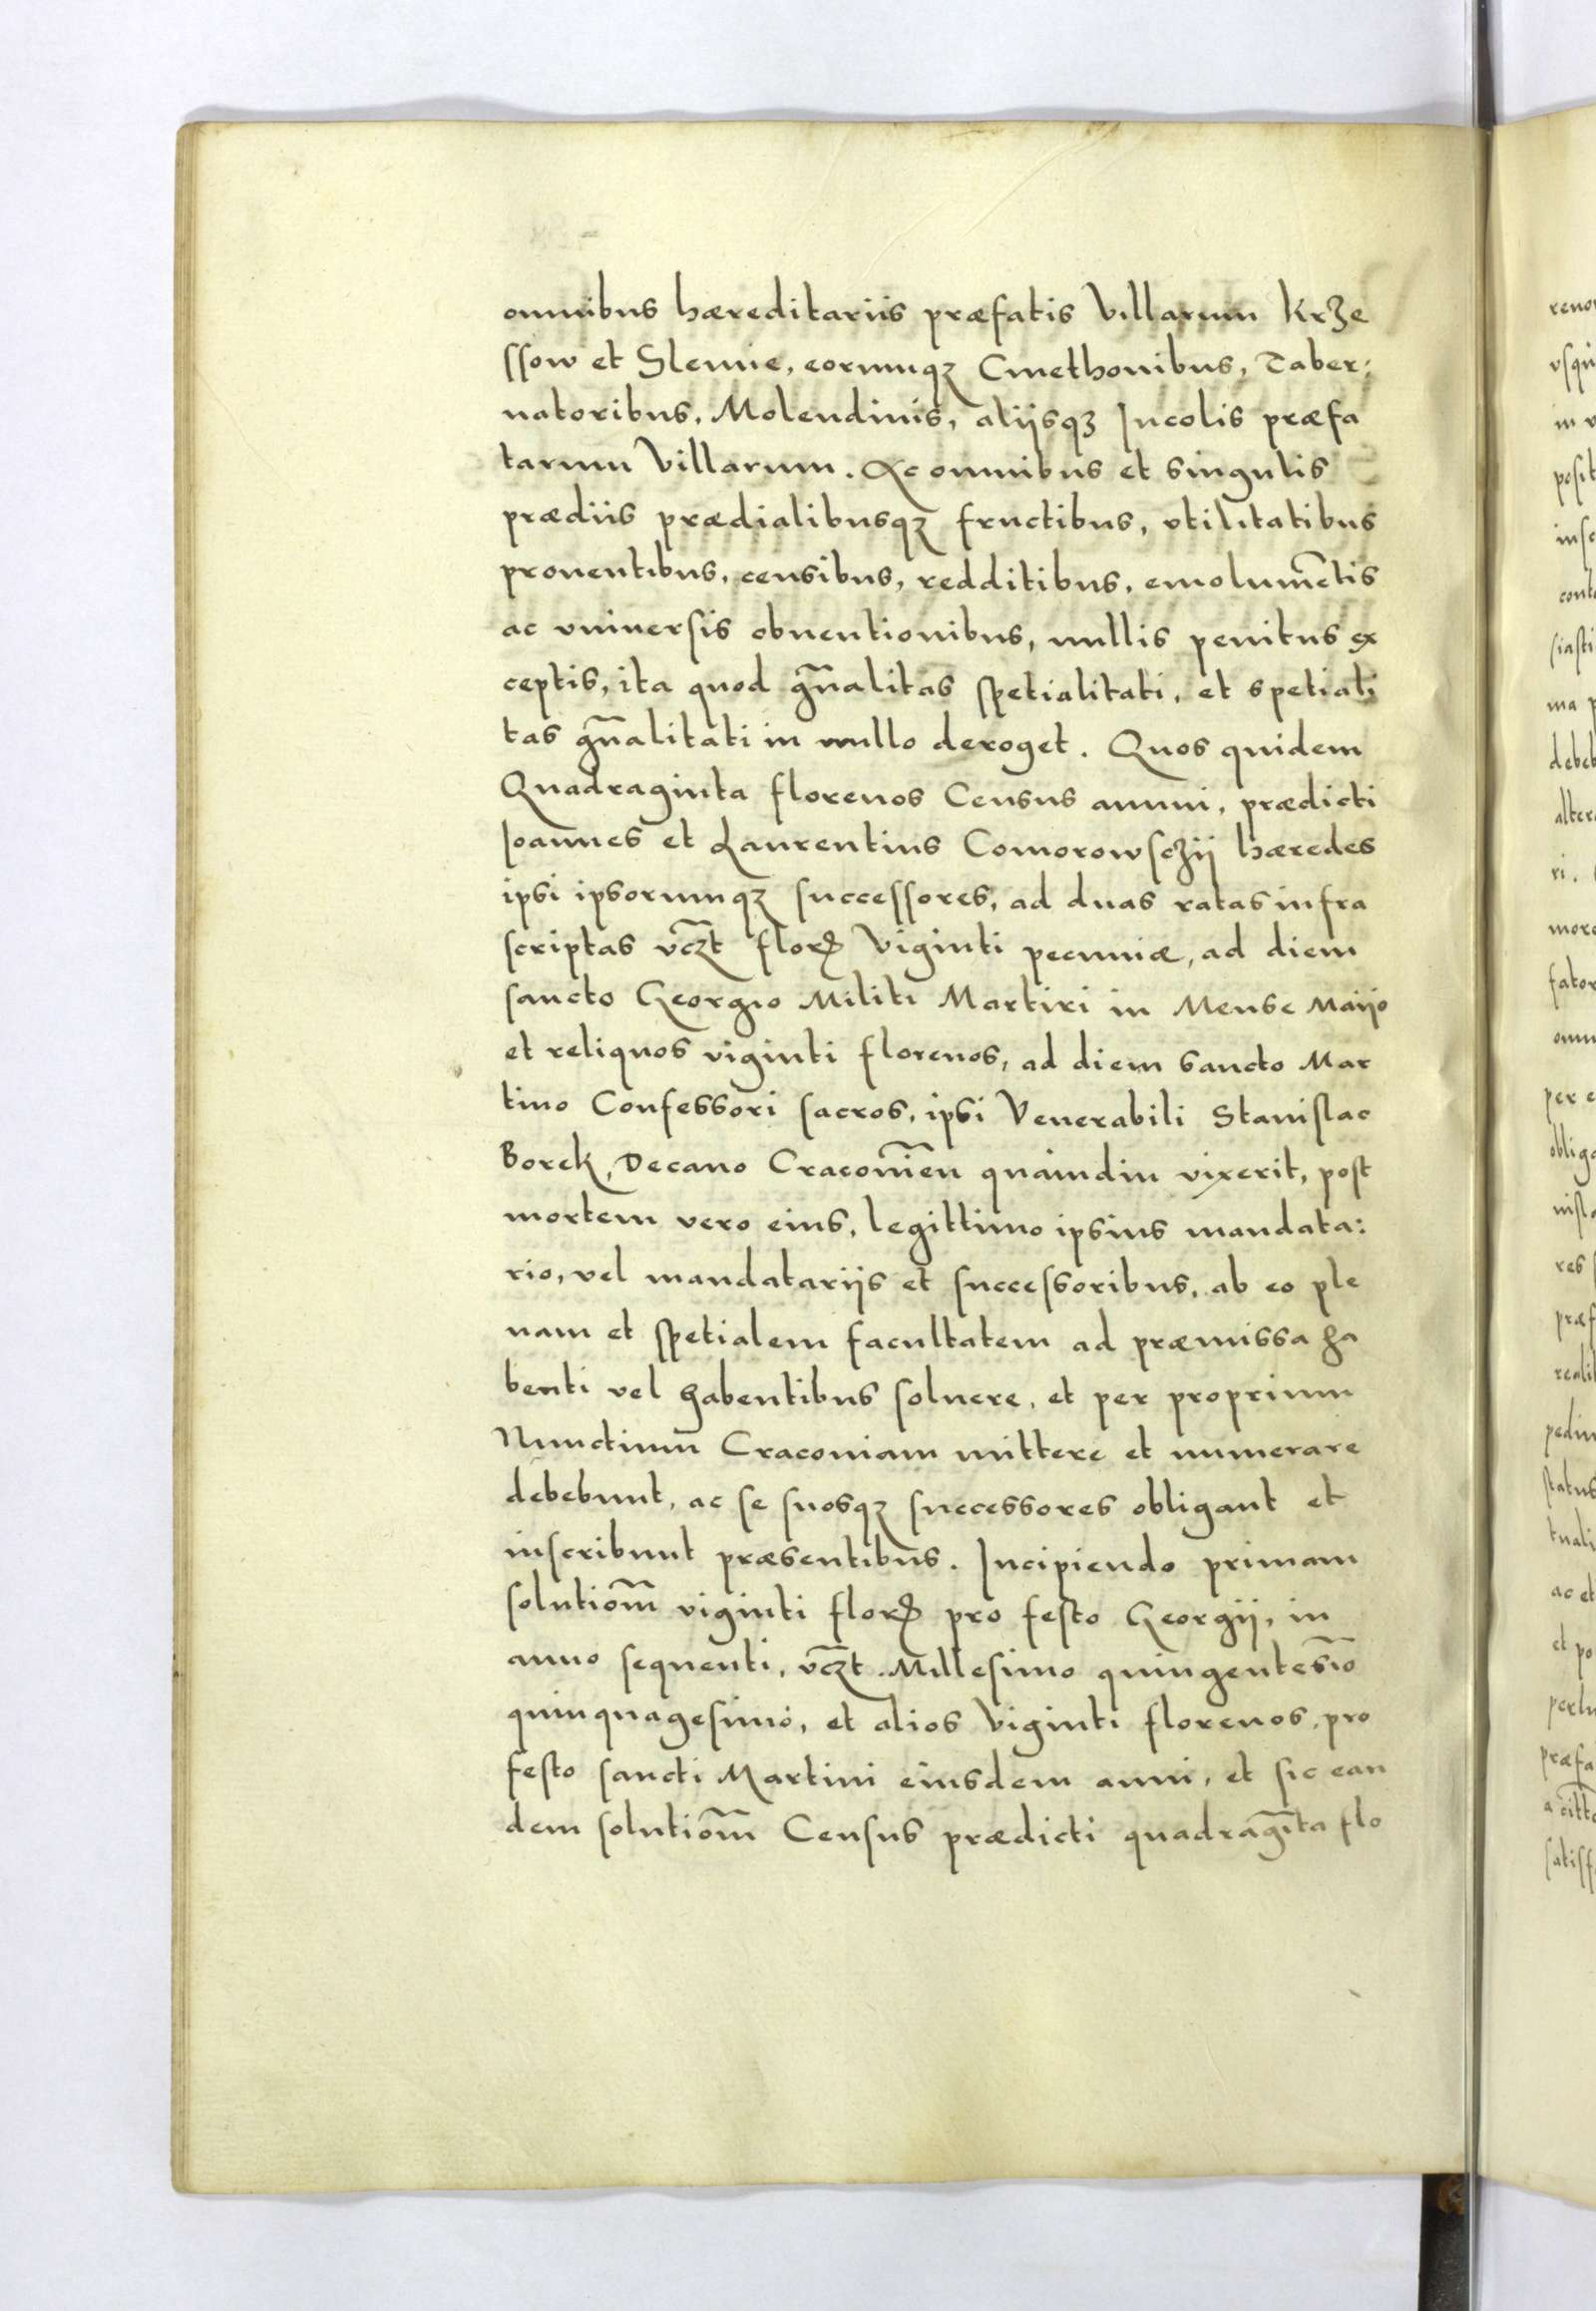 omnibus hæreditariis præfatis Villarum Krze
ssow et Slemie, eorumqꝫ Cmethonibus, Taber:
natoribus, Molendinis, aliisqꝫ Incolis præfa
tarum Villarum. Ac omnibus et singulis
prædiis prædialibusqꝫ fructibus, vtilitatibus
prouentibus, censibus, redditibus, emolumētis
ac vniuersis obuentionibus, nullis penitus ex
ceptis, ita quod gn̄alitas spetialitati, et spetiali
tas gn̄alitati in nullo deroget. Quos quidem
Quadraginta florenos Census annui, prædicti
Ioannes et Laurentius Comorowsczij hæredes
ipsi ipsorumqꝫ successores, ad duas ratas infra
scriptas vcꝫt florꝭ Viginti pecuniæ, ad diem
sancto Georgio Militi Martiri in Mense Maijo
et reliquos viginti florenos, ad diem sancto Mar
tino Confessori sacros, ipsi Venerabili Stanislao
Borek, Decano Cracouien̄ quàmdiu vixerit, post
mortem vero eius, legittimo ipsius mandata:
rio, vel mandatarijs et successoribus, ab eo ple
nam et spetialem facultatem ad præmissa ha
benti vel habentibus soluere, et per proprium
Nunctium Cracouiam mittere et numerare
debebunt, ac se suosqꝫ successores obligant et
inscribunt præsentibus. Incipiendo primam
solutiom̄ viginti florꝭ pro festo Georgij, in
anno sequenti, vcꝫt Millesimo quingentesīo
quinquagesimo, et alios Viginti florenos, pro
festo sancti Martini eiusdem anni, et sic ean
dem solutiom̄ Census prædicti quadragīta flo